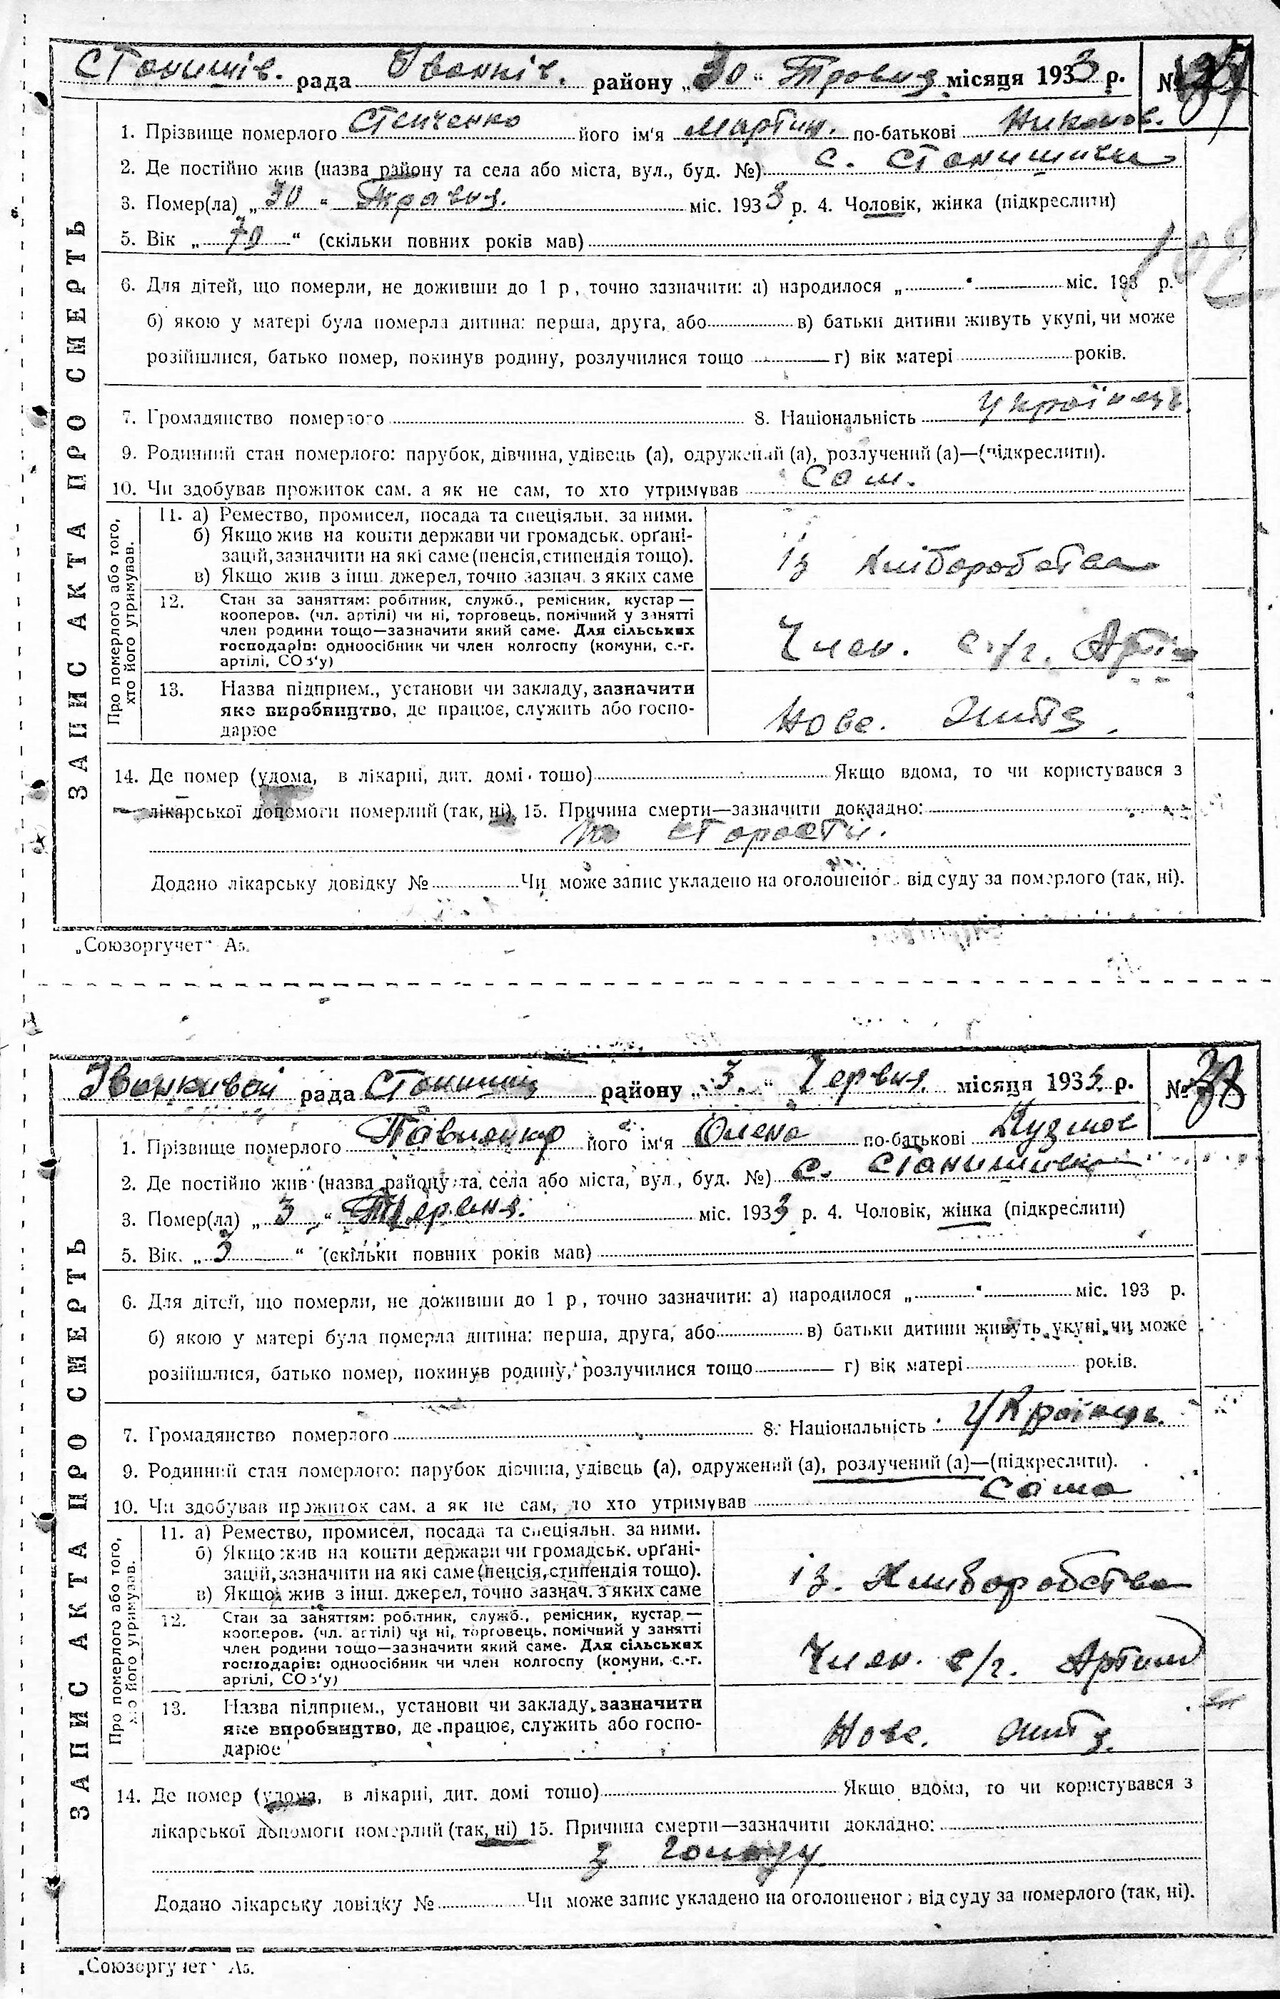 Станишів. рада Іванків. району „30“ Травня місяця 1933 р. №
ЗАПИС АКТА ПРО СМЕРТЬ
1. Прізвище померлого Стенченко його ім'я Мартин. по-батькові Никонов.
2. Де постійно жив (назва району та села або міста, вул., буд. №) с. Станишичи
3. Помер(ла) „30“ Травня. міс. 1933 р. 4. Чоловік, жінка (підкреслити)
5. Вік „70“ (скільки повних років мав)
6. Для дітей, що померли, не доживши до 1 р, точно зазначити: а) народилося „ “ міс. 193 р.
б) якою у матері була померла дитина: перша, друга, або в) батьки дитини живуть укупі, чи може
розійшлися, батько помер, покинув родину, розлучилися тощо г) вік матері років.
7. Громадянство померлого 8. Національність українець
9. Родинний стан померлого: парубок, дівчина, удівець (а), одружений (а), розлучений (а)—(підкреслити).
10. Чи здобував прожиток сам. а як не сам, то хто утримував Сам.
Про померлого або того, хто його утримував.
11. а) Ремество, промисел, посада та спеціяльн. за ними.
б) Якщо жив на кошти держави чи громадськ. орґані-
зацій, зазначити на які саме (пенсія, стипендія тощо).
в) Якщо жив з інш. джерел, точно зазнач. з яких саме
із Хліборобства
12. Стан за заняттям: робітник, служб., ремісник, кустар—
кооперов. (чл. артілі) чи ні, торговець, помічний у занятті
член родини тощо—зазначити який саме. Для сільських
господарів: одноосібник чи член колгоспу (комуни, с.-г.
артілі, СОЗ'у)
Член. с/г. Артілі
13. Назва підприєм., установи чи закладу, зазначити
яке виробництво, де працює, служить або госпо-
дарює
Нове. Життя.
14. Де помер (удома, в лікарні, дит. домі тощо) Якщо вдома, то чи користувався з
лікарської допомоги померлий (так, ні) 15. Причина смерти—зазначити докладно:
по старости.
Додано лікарську довідку № Чи може запис укладено на оголошеног. від суду за померлого (так, ні).
„Союзоргучет“ А5.
Іванкивсй рада Станишич району „3“ Червня місяця 1933 р. № 38
ЗАПИС АКТА ПРО СМЕРТЬ
1. Прізвище померлого Павленко його ім'я Олена по-батькові Кузмов
2. Де постійно жив (назва району та села або міста, вул., буд. №) с. Станишичи
3. Помер(ла) „3“ Червня. міс. 1933 р. 4. Чоловік, жінка (підкреслити)
5. Вік „3“ (скільки повних років мав)
6. Для дітей, що померли, не доживши до 1 р, точно зазначити: а) народилося „ “ міс. 193 р.
б) якою у матері була померла дитина: перша, друга, або в) батьки дитини живуть укупі, чи може
розійшлися, батько помер, покинув родину, розлучилися тощо г) вік матері років.
7. Громадянство померлого 8. Національність Українець.
9. Родинний стан померлого: парубок дівчина, удівець (а), одружений (а), розлучений (а)—(підкреслити).
10. Чи здобував прожиток сам. а як не сам, то хто утримував Сама
Про померлого або того, хто його утримував.
11. а) Ремество, промисел, посада та спеціяльн. за ними.
б) Якщо жив на кошти держави чи громадськ. орґані-
зацій, зазначити на які саме (пенсія, стипендія тощо).
в) Якщо жив з інш. джерел, точно зазнач. з яких саме
із. Хліборобства
12. Стан за заняттям: робітник, служб., ремісник, кустар—
кооперов. (чл. артілі) чи ні, торговець, помічний у занятті
член родини тощо—зазначити який саме. Для сільських
господарів: одноосібник чи член колгоспу (комуни, с.-г.
артілі, СОЗ'у)
Член. с/г. Артілі
13. Назва підприєм., установи чи закладу, зазначити
яке виробництво, де працює, служить або госпо-
дарює
Нове. Життя.
14. Де помер (удома, в лікарні, дит. домі тощо) Якщо вдома, то чи користувався з
лікарської допомоги померлий (так, ні) 15. Причина смерти—зазначити докладно:
З голоду
Додано лікарську довідку № Чи може запис укладено на оголошеног від суду за померлого (так, ні).
„Союзоргучет“ А5.